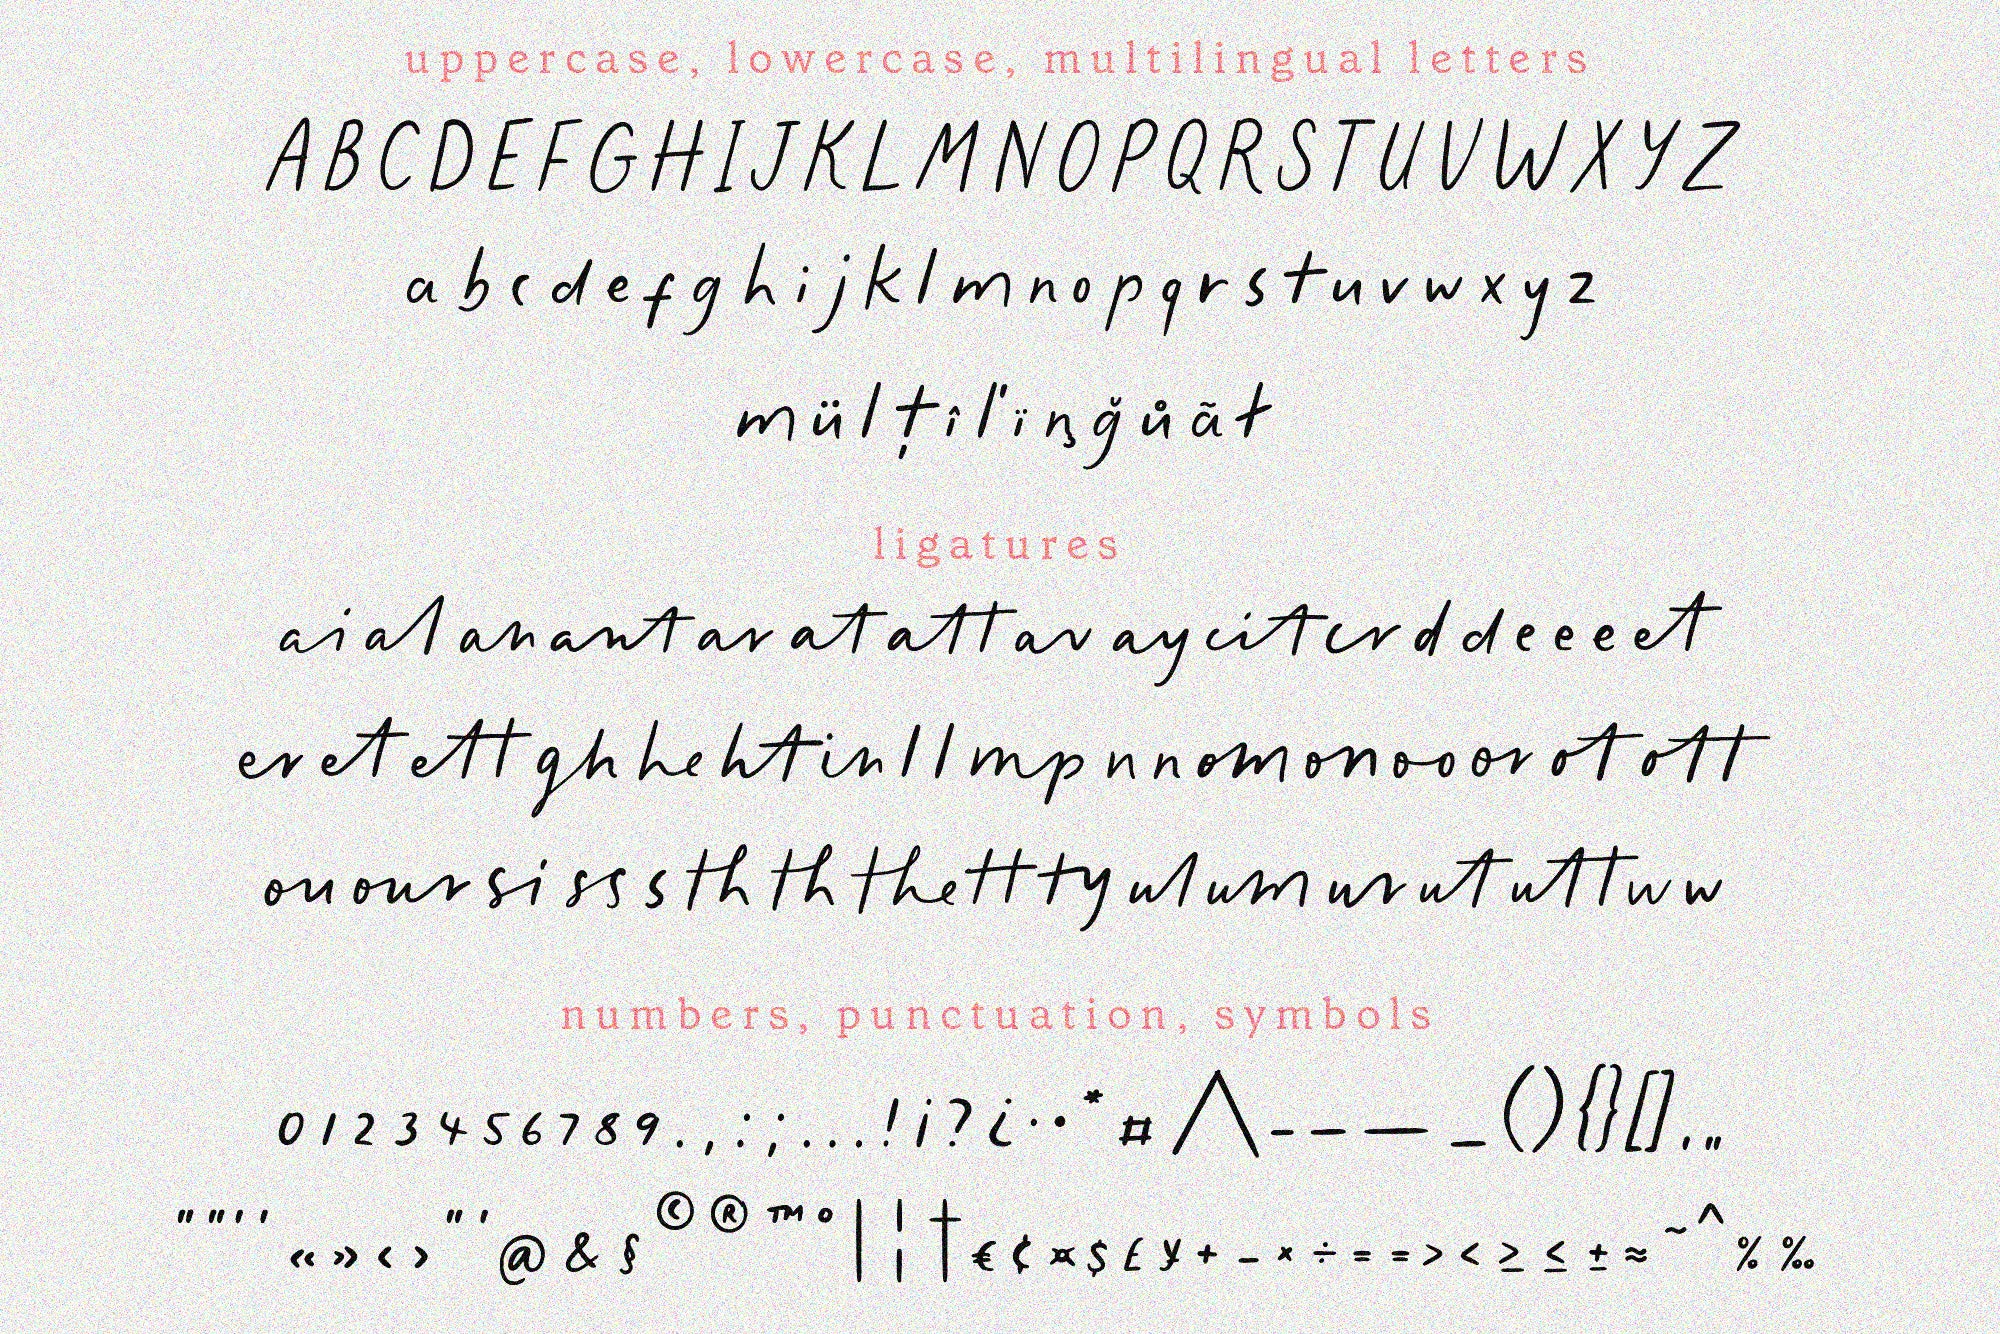 uppercase, lowercase, multilingual letters
A B C D E F G H I J K L M N O P Q R S T U V W X Y Z
a b c d e f g h i j k l m n o p q r s t u v w x y z
m ü l ț î ľ ï ņ ğ ů ã ł
ligatures
ai al an ant ar at att av ay cit cr d d e e e et
er et ett gh he ht in l l mp n n om on oo or ot ott
ou our si s s s th th the tt ty ul um ur ut utt w w
numbers, punctuation, symbols
0 1 2 3 4 5 6 7 8 9 . , : ; ... ! ¡ ? ¿ · • * # / \ - – — _ ( ) { } [ ] ‚ „
" " ' ' « » ‹ › " ' @ & § © ® ™ ° | ¦ † € ¢ ¤ $ £ ¥ + − × ÷ = = > < ≥ ≤ ± ≈ ~ ^ % ‰